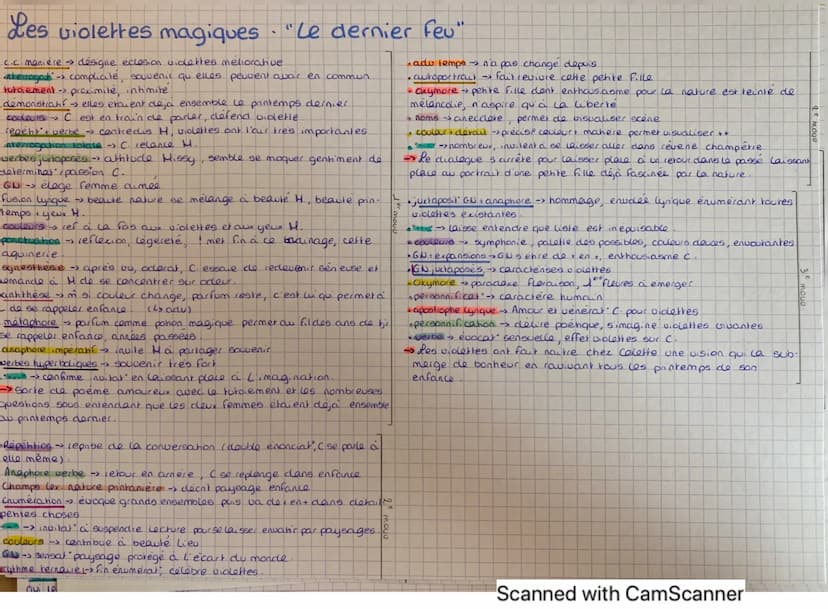 Les violettes magiques. "Le dernier feu"
c.c. manière → désigne éclosion violettes méliorative
interrogat° → complicité, souvenir qu'elles peuvent avoir en commun
tutoiement → proximité, intimité
démonstratif → elles étaient déjà ensemble le printemps dernier
couleurs → C est en train de parler, défend violette
verbe → contredis M, violettes ont l'air très importantes
interrogation totale → C. relance M.
verbes juxtaposés → attitude Missy, semble se moquer gentiment de
déterminat° / passion C.
GN → éloge femme aimée
fusion lyrique → beauté nature se mélange à beauté M, beauté prin-
temps + yeux M.
couleurs → réf à la fois aux violettes et aux yeux M.
ponctuation → réflexion, légèreté, ! met fin à ce badinage, cette
taquinerie
synesthésie → après vu, odorat, C essaie de redevenir sérieuse et
demande à M de se concentrer sur odeur.
antithèse → m̂ si couleur change, parfum reste, c'est lui qui permet à
C de se rappeler enfance.
métaphore → parfum comme potion magique permet au fil des ans de
se rappeler enfance, années passées.
anaphore impératif → invite M à partager souvenir
verbes hyperboliques → souvenir très fort
→ confirme invitat° en laissant place à l'imagination.
→ Sorte de poème amoureux avec le tutoiement et les nombreuses
questions sous entendant que les deux femmes étaient déjà ensemble
au printemps dernier.
1er mouv
Répétition → reprise de la conversation (double énonciat°, C se parle à
elle même)
Anaphore verbe → retour en arrière, C se replonge dans enfance
Champs lex nature printanière → décrit paysage enfance
énumération → évoque grands ensembles puis va de + en + dans détails
petites choses
→ invitat° à suspendre lecture pour se laisser envahir par paysages.
couleurs → contribue à beauté lieu
GN → sensat° paysage protégé à l'écart du monde.
rythme ternaire → fin énumérat°, célèbre violettes.
2e mouv
• adv temps → n'a pas changé depuis
• autoportrait → fait revivre cette petite fille
• oxymore → petite fille dont enthousiasme pour la nature est teinté de
mélancolie, n'aspire qu'à la liberté
• noms → anecdote, permet de visualiser scène
• couleur + détail → précise couleur + matière permet visualiser ++
→ nombreux, invitent à se laisser aller dans rêverie champêtre
→ Le dialogue s'arrête pour laisser place à un retour dans le passé laissant
place au portrait d'une petite fille déjà fascinée par la nature.
2e mouv
• juxtaposit° GN + anaphore → hommage, envolée lyrique énumérant toutes
violettes existantes.
→ laisse entendre que liste est inépuisable.
• couleurs → symphonie, palette des possibles, couleurs douces, envoûtantes
• GN + expansions → GN s'étire de + en +, enthousiasme C.
• GN juxtaposés → caractérise violettes
• oxymore → paradoxe floraison, 1ères fleurs à émerger
• personnificat° → caractère humain
• apostrophe lyrique → Amour et vénérat° C pour violettes
• personnification → délire poétique, s'imagine violettes vivantes
• verbe → évocat° sensuelle, effet violettes sur C.
→ Les violettes ont fait naître chez Colette une vision qui la sub-
merge de bonheur en ravivant tous les printemps de son
enfance.
3e mouv
Scanned with CamScanner